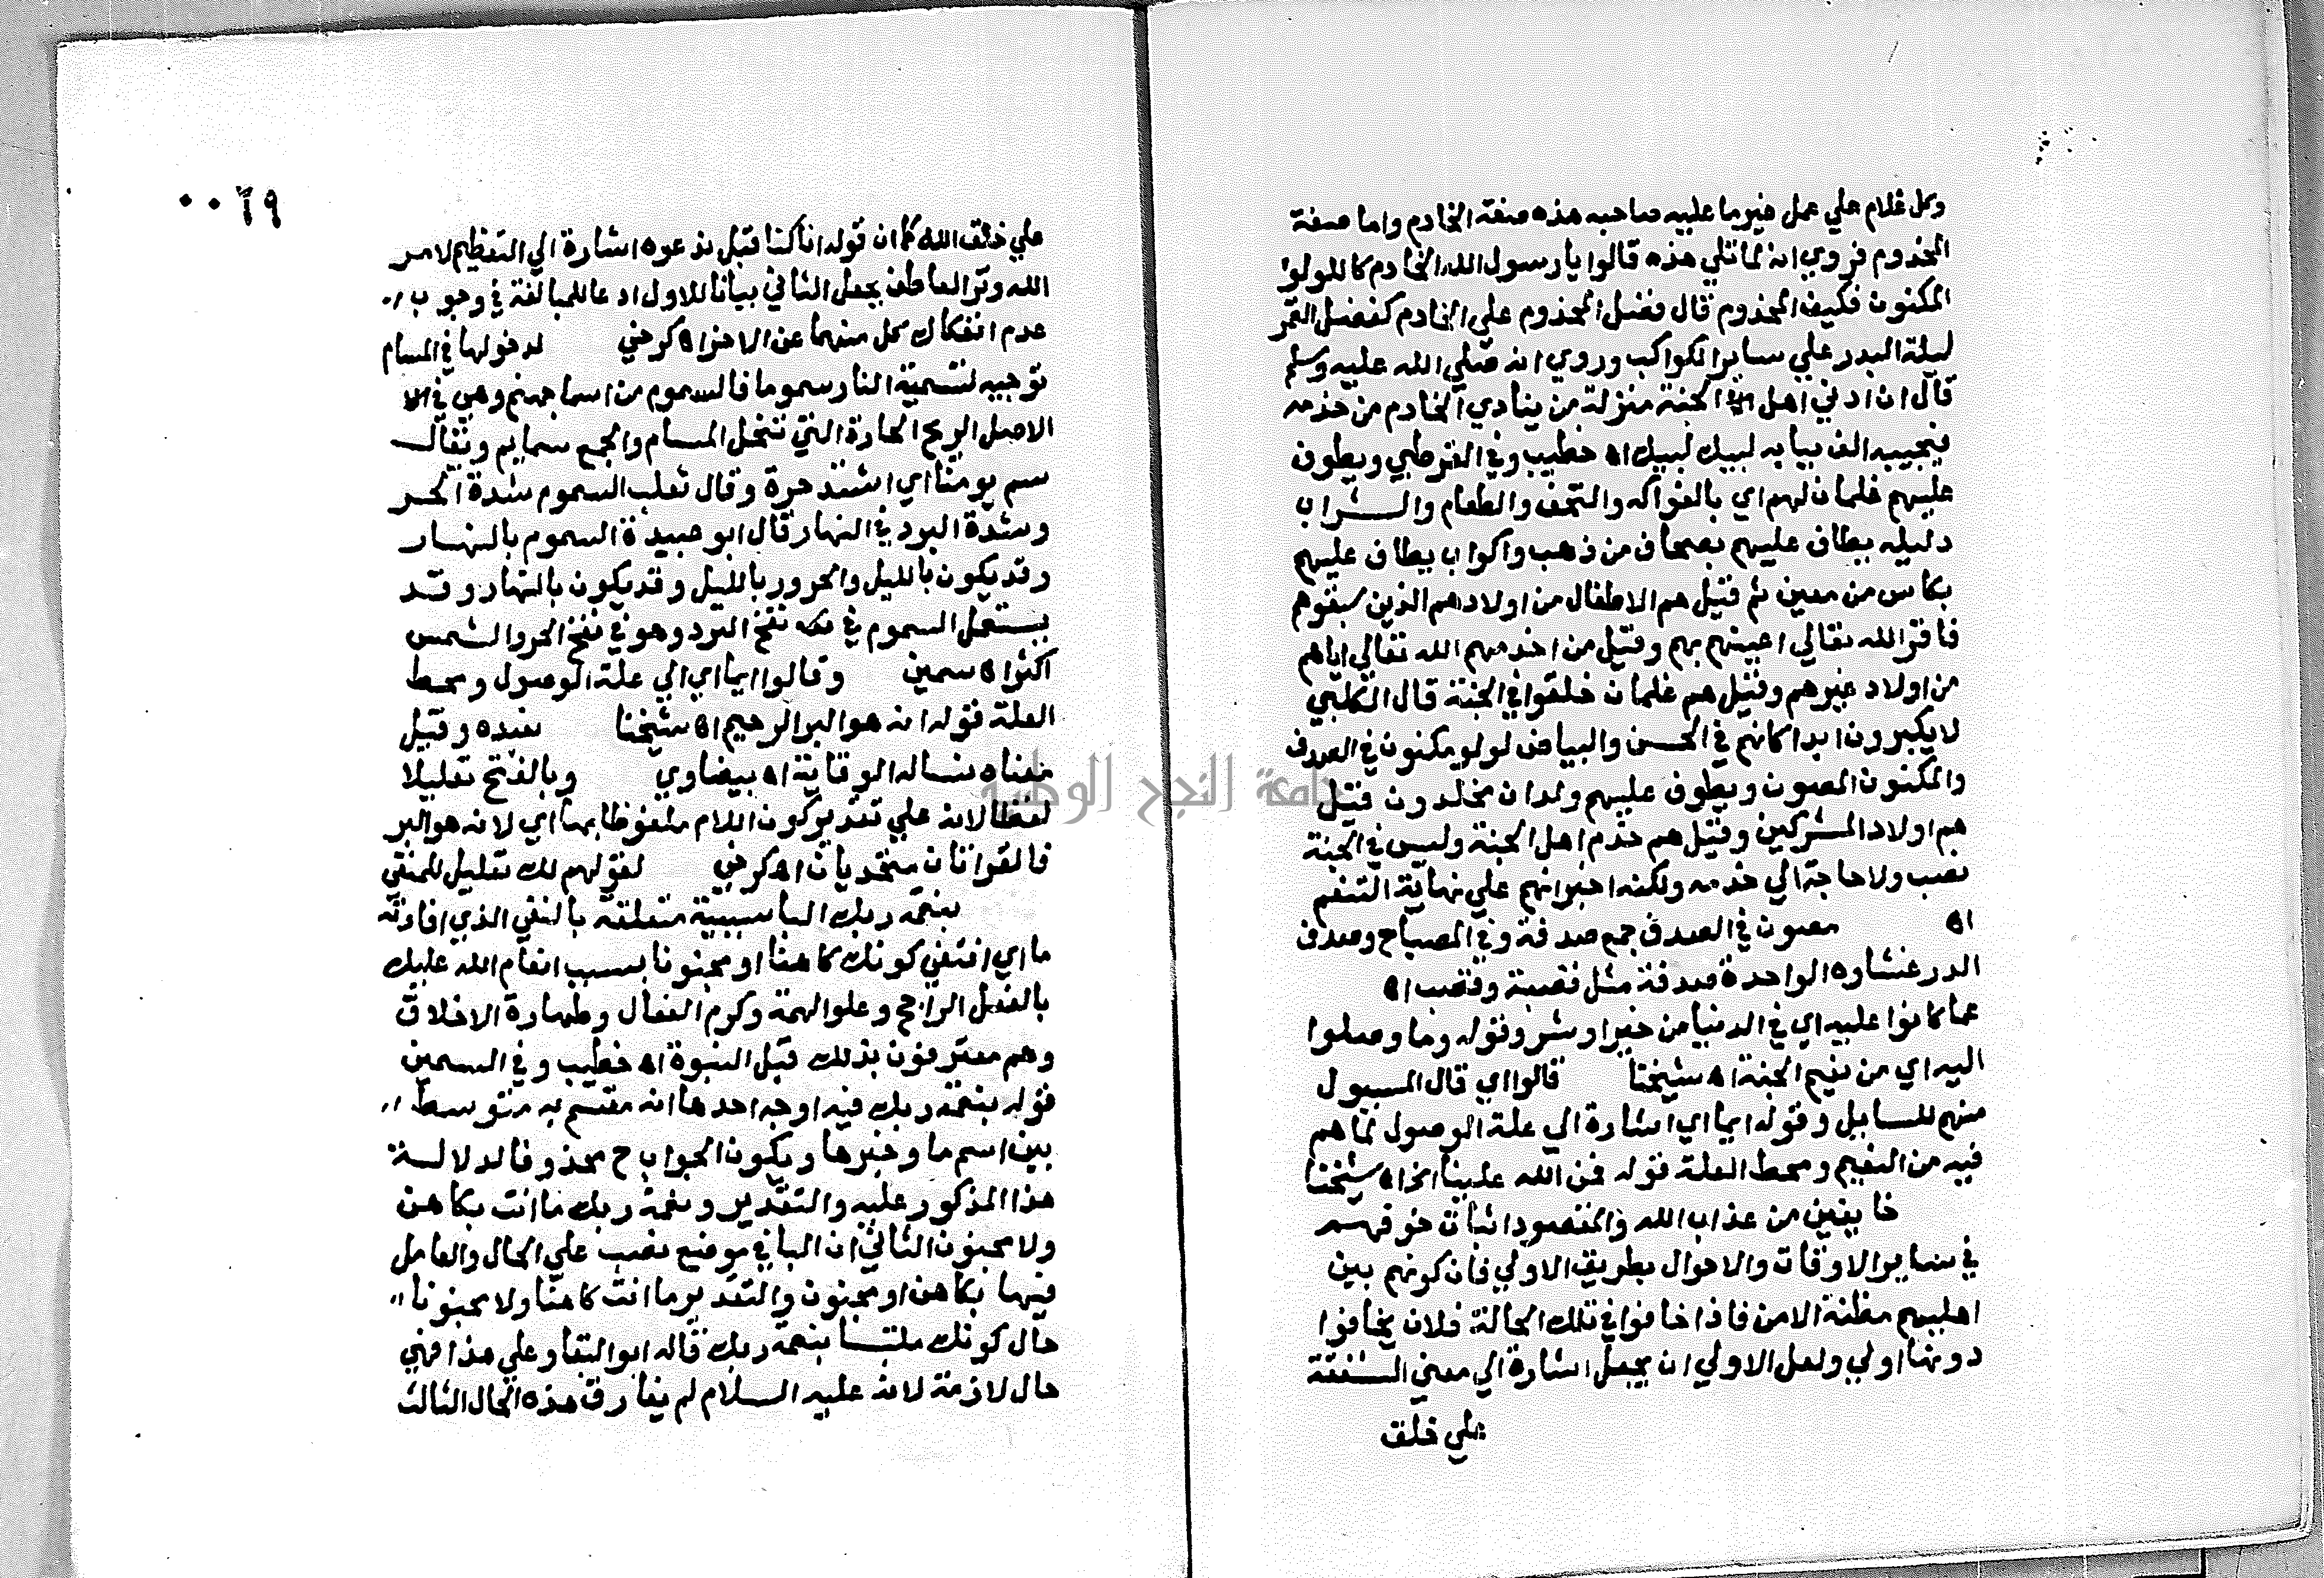 وكل غلام علي عمل غير ما عليه صاحبه هذه صفة الخادم واما صفة
المخدوم فروي انه لما تلي هذه قالوا يا رسول الله الخادم كاللولوا
المكنون فكيف المخدوم قال فضل المخدوم علي الخادم كفضل القمر
ليلة البدر علي ساير الكواكب وروي انه صلي الله عليه وسلم
قال ان ادني اهل الجنة منزلة من ينادي الخادم من خدمه
فيجيبه الف ببابه لبيك لبيك اه خطيب وفي القرطبي ويطوف
عليهم غلمان لهم اي بالفواكه والتحف والطعام والشراب
دليله يطاف عليهم بصحاف من ذهب واكواب يطاف عليهم
بكاس من معين ثم قيل هم الاطفال من اولادهم الذين سبقوهم
فاقر الله تعالي اعينهم بهم وقيل من اخدمهم الله تعالي اياهم
من اولاد غيرهم وقيل هم غلمان خلقوا في الجنة قال الكلبي
لا يكبرون ابدا كانهم في الحسن والبياض لولو مكنون في الصدف
والمكنون المصون ويطوف عليهم ولدان مخلدون قيل
هم اولاد المشركين وقيل هم خدم اهل الجنة وليس في الجنة
نصب ولا حاجة الي خدمه ولكنه اخبر انهم علي نهاية التنعم
اه مصون في الصدف جمع صدفة وفي المصباح وصدف
الدر غشاوه الواحدة صدفة مثل قصبة وقصب اه
عما كانوا عليه اي في الدنيا من خير او شر وقوله وما وصلوا
اليه اي من نعيم الجنة اه شيخنا قالوا اي قال المسيول
منهم للسايل وقوله ايما اي اشارة الي علة الوصول لما هم
فيه من النعيم ومحط العلة قوله فمن الله علينا الخ اه شيخنا
خايفين من عذاب الله والمقصود اثبات خوفهم
في ساير الاوقات والاحوال بطريق الاولي فان كونهم بين
اهليهم مظنة الامن فاذا خافوا في تلك الحالة فلان يخافوا
دونها اولي ولعل الاولي ان يجعل اشارة الي معني الشفقة
علي خلق
٠٠٦٩
علي خلق الله كما ان قوله انا كنا قبل ندعوه اشارة الي التعظيم لامر
الله وترك العاطف بجعل الثاني بيانا للاول ادعا للمبالغة في وجوب
عدم انفكاك كل منهما عن الاخر اه كرخي لدخولها في المسام
توجيه لتسمية النار سموما فالسموم من اسما جهنم وهي في الا
الاصل الريح الحارة التي تتخلل المسام والجمع سمايم ويقال
سم يومنا اي اشتد حرة وقال ثعلب السموم شدة الحر
وشدة البرد في النهار قال ابو عبيدة السموم بالنهار
وقد يكون بالليل والحرور بالليل وقد يكون بالنهار وقد
يستعمل السموم في نفخ البرد وهو في نفخ الحر والشمس
اكثر اه سمين وقالوا ايما اي الي علة الوصول ومحط
العلة قوله انه هو البر الرحيم اه شيخنا نعبده وقيل
معناه نساله الوقاية اه بيضاوي وبالفتح تعليلا
لفظا لانه علي تقدير كون اللام ملفوظا بها اي لانه هو البر
فالقراتان متحدتان اه كرخي لقولهم لك تعليل للمنفي
بنعمة ربك البا سببية متعلقة بالنفي الذي افادته
ما اي انتفي كونك كاهنا او مجنونا بسبب انعام الله عليك
بالعقل الراجح وعلو الهمة وكرم الفعال وطهارة الاخلاق
وهم معترفون بذلك قبل النبوة اه خطيب وفي السمين
قوله بنعمة ربك فيه اوجه احدها انه مقسم به متوسط
بين اسم ما وخبرها ويكون الجواب ح محذوفا لدلالة
هذا المذكور عليه والتقدير ونعمة ربك ما انت بكاهن
ولا مجنون الثاني ان البا في موضع نصب علي الحال والعامل
فيها بكاهن او مجنون والتقدير ما انت كاهنا ولا مجنونا
حال كونك ملتبسا بنعمة ربك قاله ابو البقا وعلي هذا فهي
حال لازمة لانه عليه السلام لم يفارق هذه الحال الثالث
جامعة النجاح الوطنية